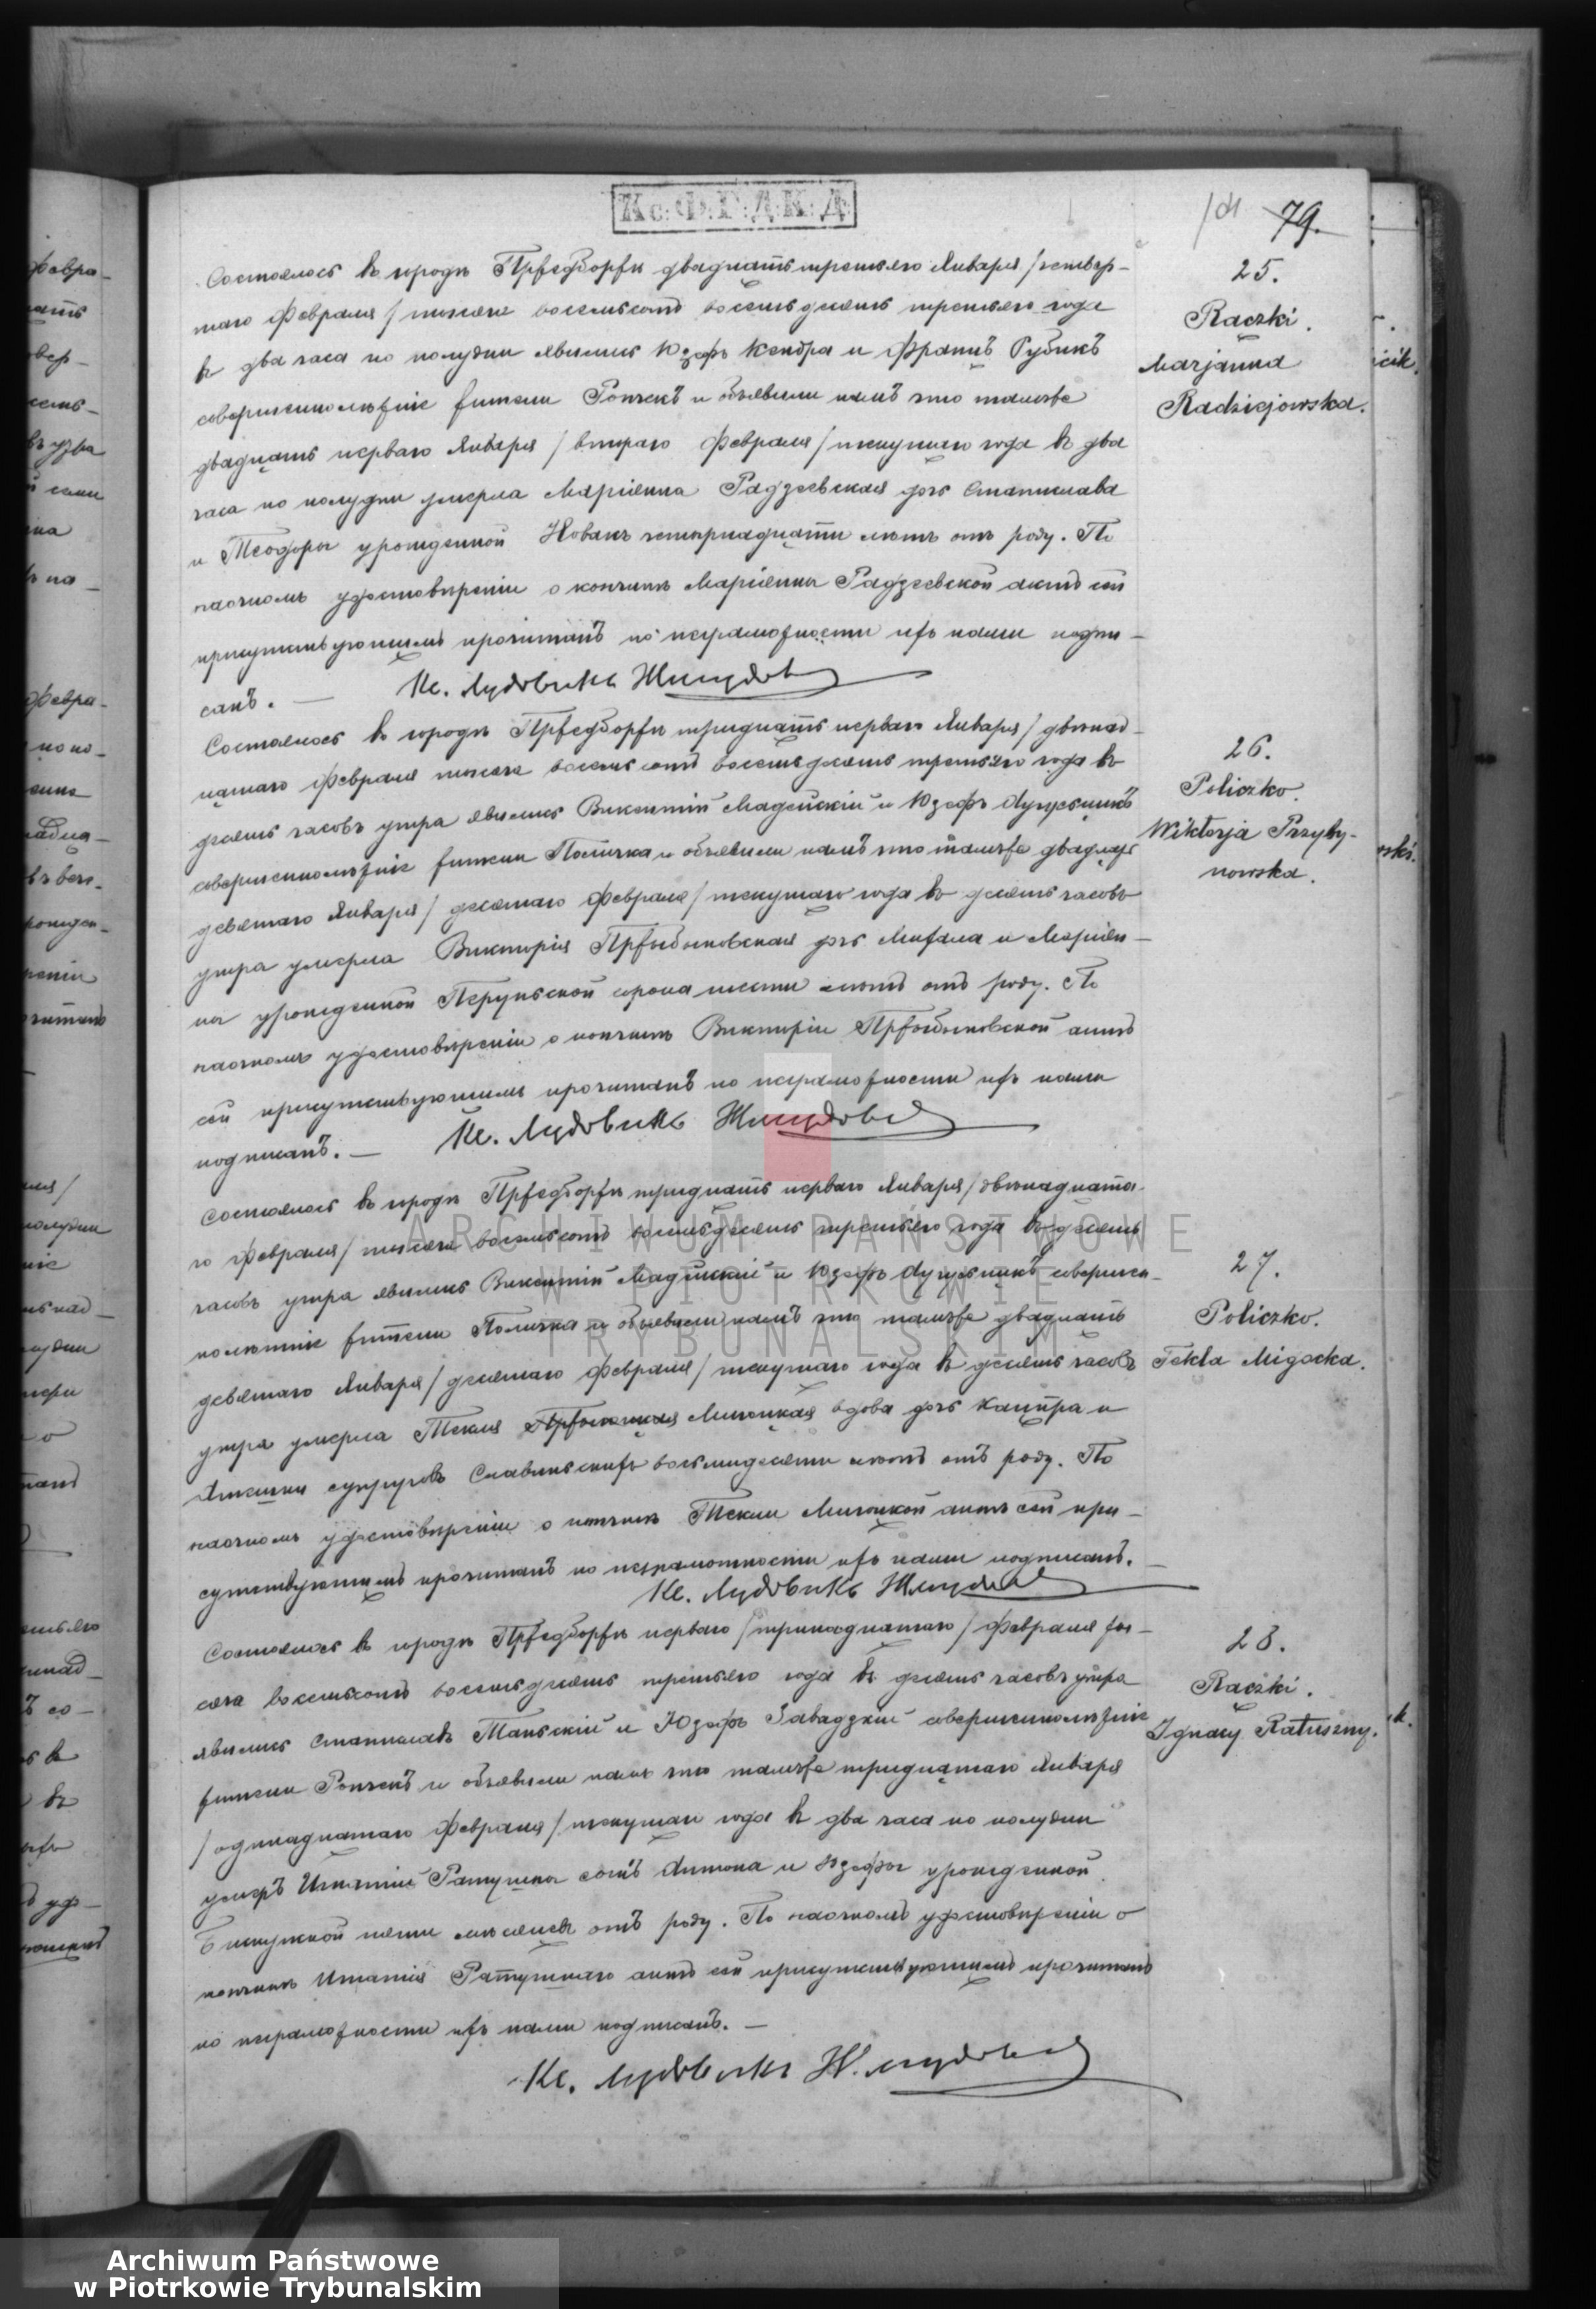 Кс:Ф:Г:Д:К:Д
79.
Состоялось въ городѣ Пржедборжѣ двадцать третьяго Января / четвер-
таго Февраля / тысяча восемьсотъ восемьдесятъ третьяго года
въ два часа по полудни явились Юзефъ Кендра и Францъ Рубикъ
совершеннолѣтніе жители Рончекъ и объявили намъ что тамъже
двадцать перваго Января / втораго Февраля / текущаго года въ два
часа по полудни умерла Маріянна Радзеевская дочь Станислава
и Теодоры урожденной Новакъ четырнадцати лѣтъ отъ роду. По
наочномъ удостовѣреніи о кончинѣ Маріянны Радзеевской актъ сей
присутствующимъ прочитанъ по неграмотности ихъ нами подпи-
санъ. — Кс. Лудовикъ
25.
Rączki.
Marjanna
Radziejowska.
Состоялось въ городѣ Пржедборжѣ тридцать перваго Января / двѣнад-
цатаго Февраля тысяча восемьсотъ восемьдесятъ третьяго года въ
десять часовъ утра явились Викентій Мадейскій и Юзефъ
совершеннолѣтніе жители Поличка и объявили намъ что тамъже двадцать
девятаго Января / десятаго Февраля / текущаго года въ десять часовъ
утра умерла Викторія Пржибыновская дочь Михала и Маріян-
ны урожденной сорока шести лѣтъ отъ роду. По
наочномъ удостовѣреніи о кончинѣ Викторіи Пржибыновской актъ
сей присутствующимъ прочитанъ по неграмотности ихъ нами
подписанъ. — Кс. Лудовикъ
26.
Policzko.
Wiktorja Przyby-
nowska.
Состоялось въ городѣ Пржедборжѣ тридцать перваго Января / двѣнадцата-
го Февраля / тысяча восемьсотъ восемьдесятъ третьяго года въ десять
часовъ утра явились Викентій Мадейскій и Юзефъ совершен-
нолѣтніе жители Поличка и объявили намъ что тамъже двадцать
девятаго Января / десятаго Февраля / текущаго года въ десять часовъ
утра умерла Текля Мигоцкая вдова дочь и
супруговъ восьмидесяти лѣтъ отъ роду. По
наочномъ удостовѣреніи о кончинѣ Текли Мигоцкой актъ сей при-
сутствующимъ прочитанъ по неграмотности ихъ нами подписанъ. —
Кс. Лудовикъ
27.
Policzko.
Tekla Migocka.
Состоялось въ городѣ Пржедборжѣ перваго / тринадцатаго / Февраля ты-
сяча восемьсотъ восемьдесятъ третьяго года въ десять часовъ утра
явились Станиславъ Таньскій и Юзефъ Завадзкій совершеннолѣтніе
жители Рончекъ и объявили намъ что тамъже тридцатаго Января
/ одинадцатаго Февраля / текущаго года въ два часа по полудни
умеръ Игнатій Ратушны сынъ Антона и Юзефы урожденной
пяти мѣсяцевъ отъ роду. По наочномъ удостовѣреніи о
кончинѣ Игнатія Ратушнаго актъ сей присутствующимъ прочитанъ
по неграмотности ихъ нами подписанъ. —
Кс. Лудовикъ
28.
Rączki.
Ignacy Ratuszny.
ARCHIWUM PAŃSTWOWE
W PIOTRKOWIE
TRYBUNALSKIM
Archiwum Państwowe
w Piotrkowie Trybunalskim